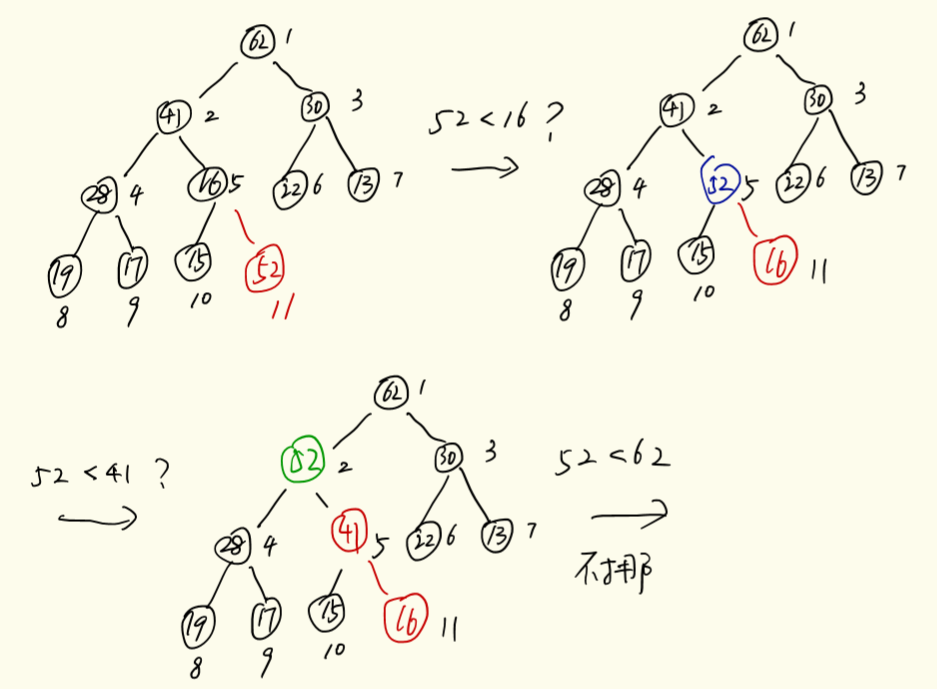 62 1
41 2 30 3
28 4 16 5 22 6 13 7
19 17 15 52
8 9 10 11
52 < 16 ?
62 1
41 2 30 3
28 4 52 5 22 6 13 7
19 17 15 16 11
8 9 10
52 < 41 ?
62 1
52 2 30 3
28 4 41 5 22 6 13 7
19 17 15 16 11
8 9 10
52 < 62
不挪